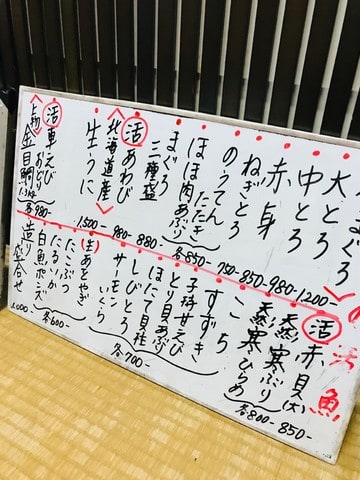 の
活
魚
まぐろ
大とろ 1200-
中とろ 980-
赤身 850-
ねぎとろ 750-
のうてん
たたき
ほほ肉あぶり
各850-
まぐろ
三種盛 880-
活 あわび 980-
北海道産
生うに 1500-
活 車えび
おどり
上物 金目鯛
各980-
活 赤貝(大) 850-
天然 寒ぶり
天然 寒ひらめ
各800-
こち
すずき
子持甘えび
とり貝あぶり
ほたて貝柱
とろ
サーモン
いくら
各700-
(生)あおやぎ
たこぶつ
たるいか
白魚ポンズ
各600-
盛合せ